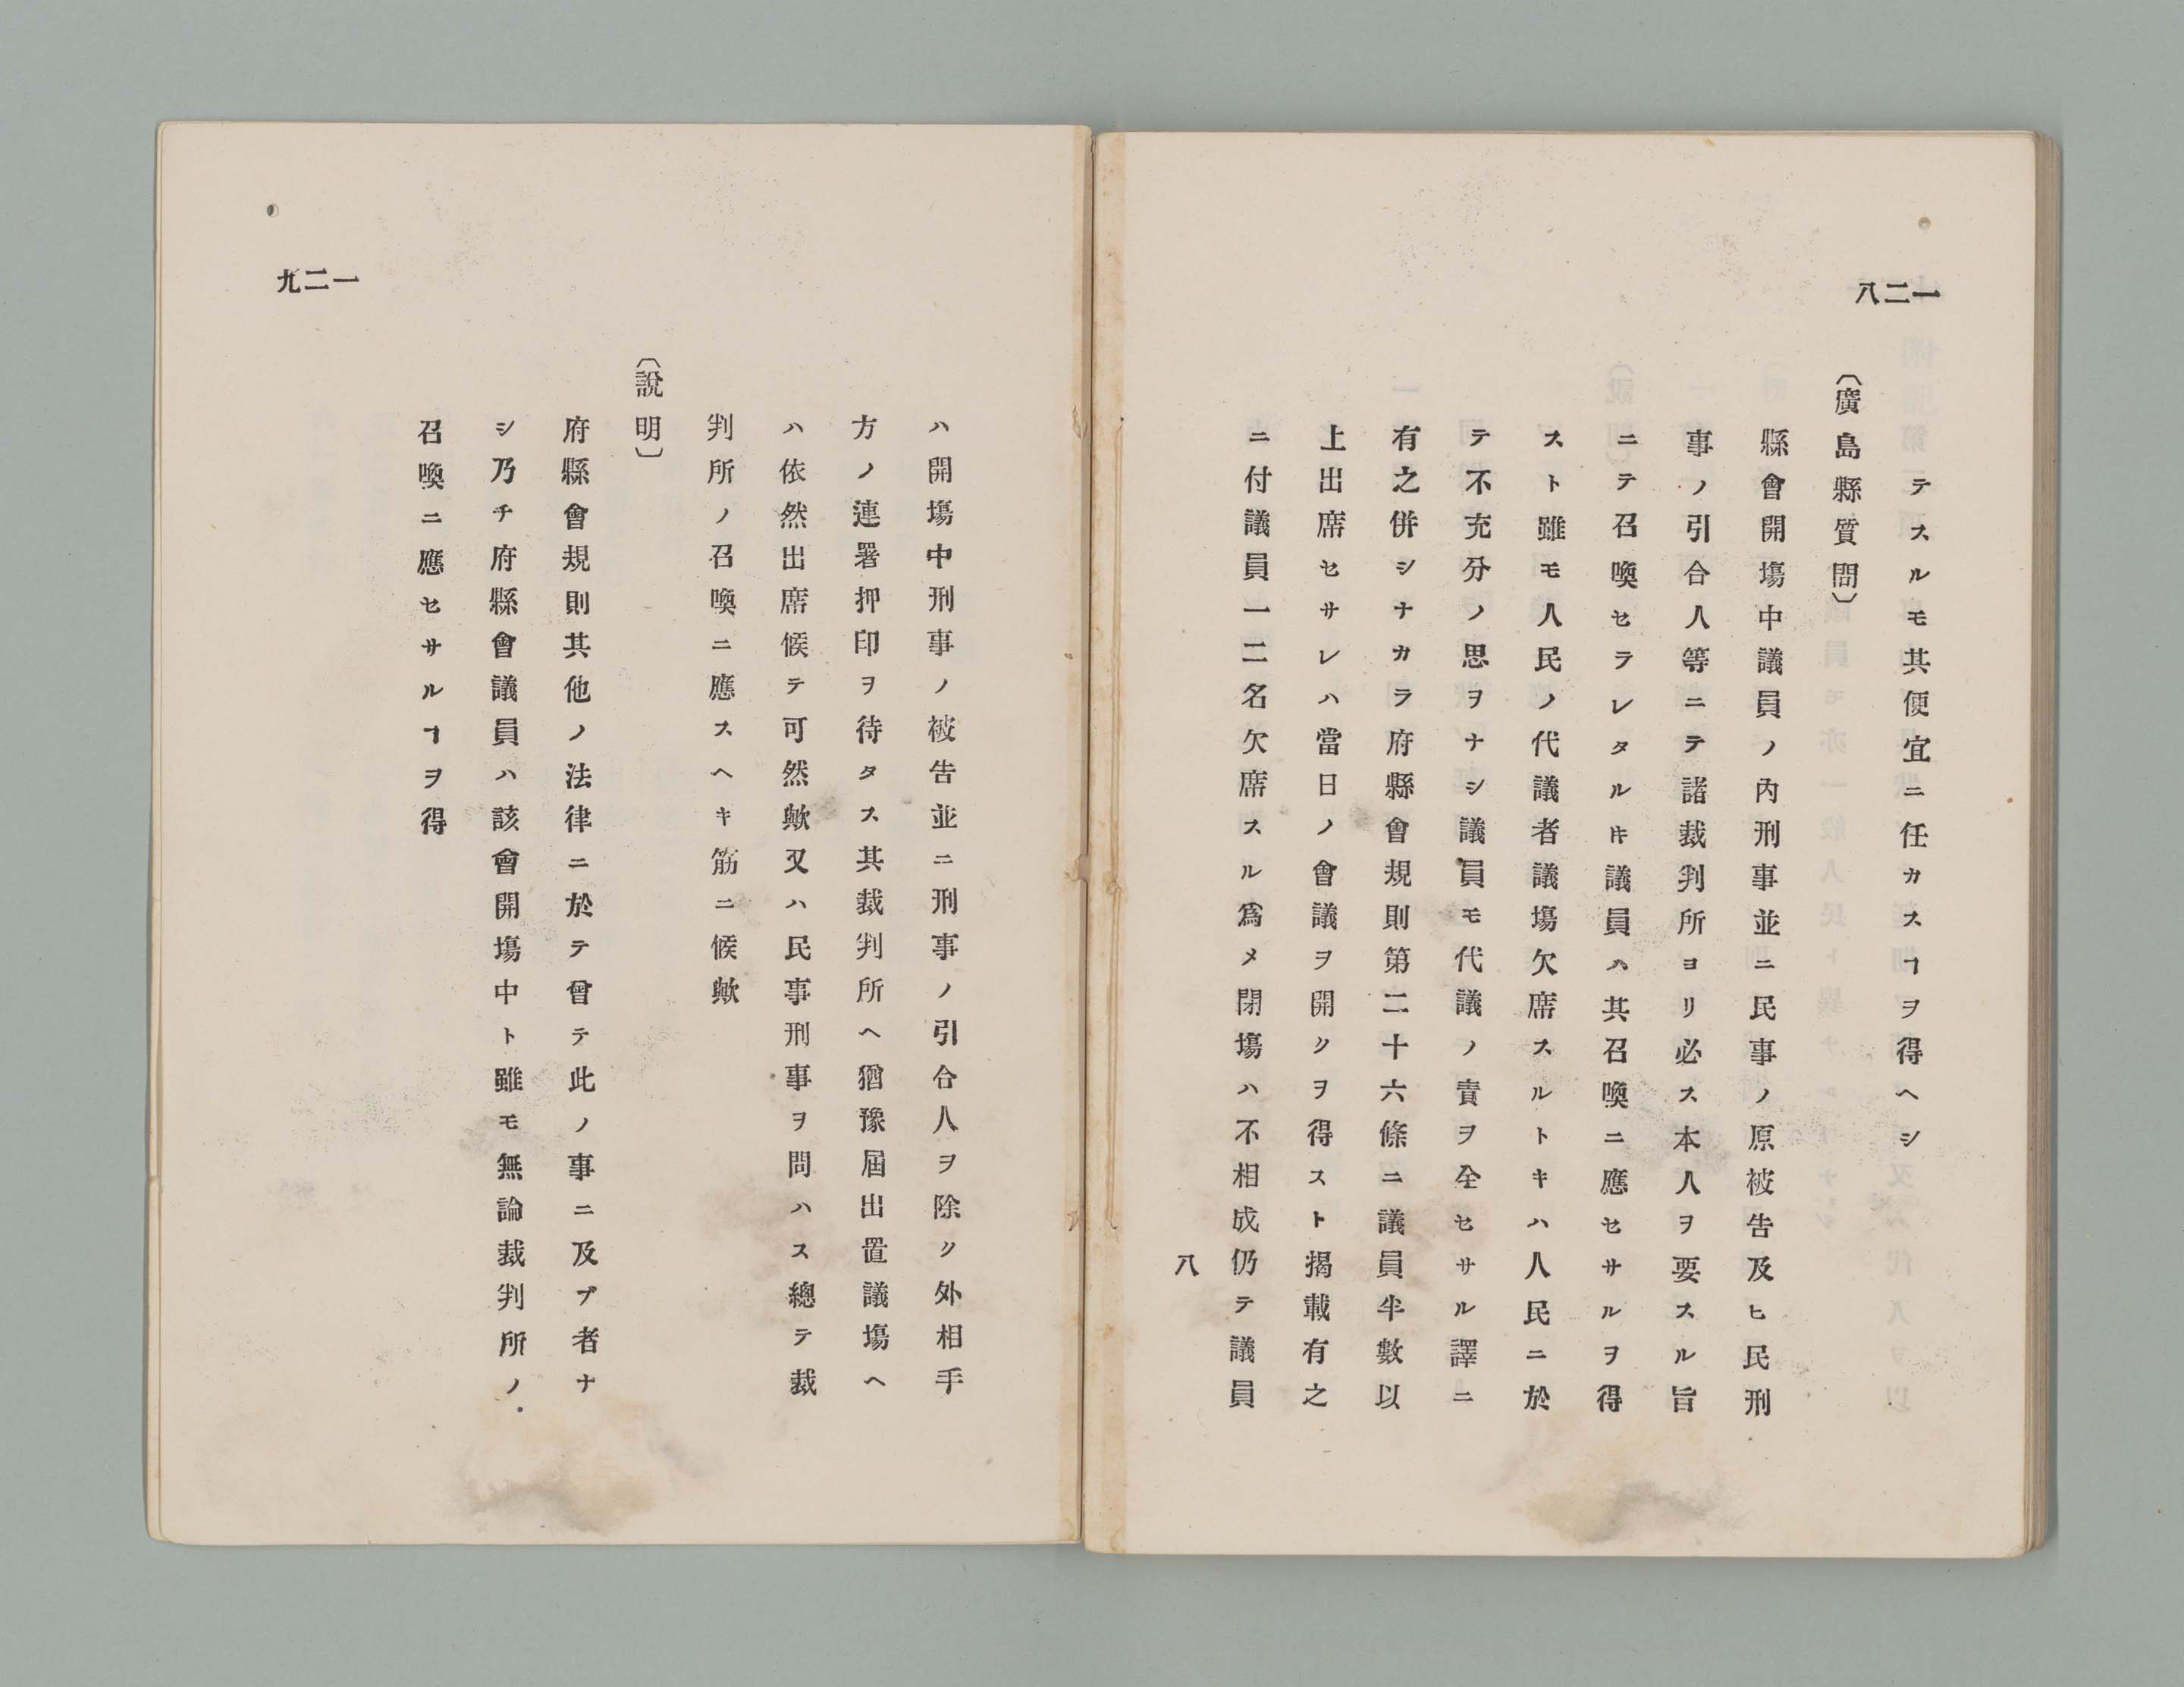 一二八
テスルモ其便宜ニ任カスヿヲ得ヘシ
〔廣島縣質問〕
縣會開塲中議員ノ內刑事並ニ民事ノ原被告及ヒ民刑
事ノ引合人等ニテ諸裁判所ヨリ必ス本人ヲ要スル旨
ニテ召喚セラレタルトキ議員ハ其召喚ニ應セサルヲ得
スト雖モ人民ノ代議者議塲欠席スルトキハ人民ニ於
テ不充分ノ思ヲナシ議員モ代議ノ責ヲ全セサル譯ニ
有之併シナカラ府縣會規則第二十六條ニ議員半數以
上出席セサレハ當日ノ會議ヲ開クヲ得スト揭載有之
ニ付議員一二名欠席スル爲メ閉塲ハ不相成仍テ議員
八
一二九
ハ開塲中刑事ノ被告並ニ刑事ノ引合人ヲ除ク外相手
方ノ連署押印ヲ待タス其裁判所ヘ猶豫屆出置議塲ヘ
ハ依然出席候テ可然歟又ハ民事刑事ヲ問ハス總テ裁
判所ノ召喚ニ應スヘキ筋ニ候歟
〔說明〕
府縣會規則其他ノ法律ニ於テ曾テ此ノ事ニ及ブ者ナ
シ乃チ府縣會議員ハ該會開塲中ト雖モ無論裁判所ノ
召喚ニ應セサルヿヲ得